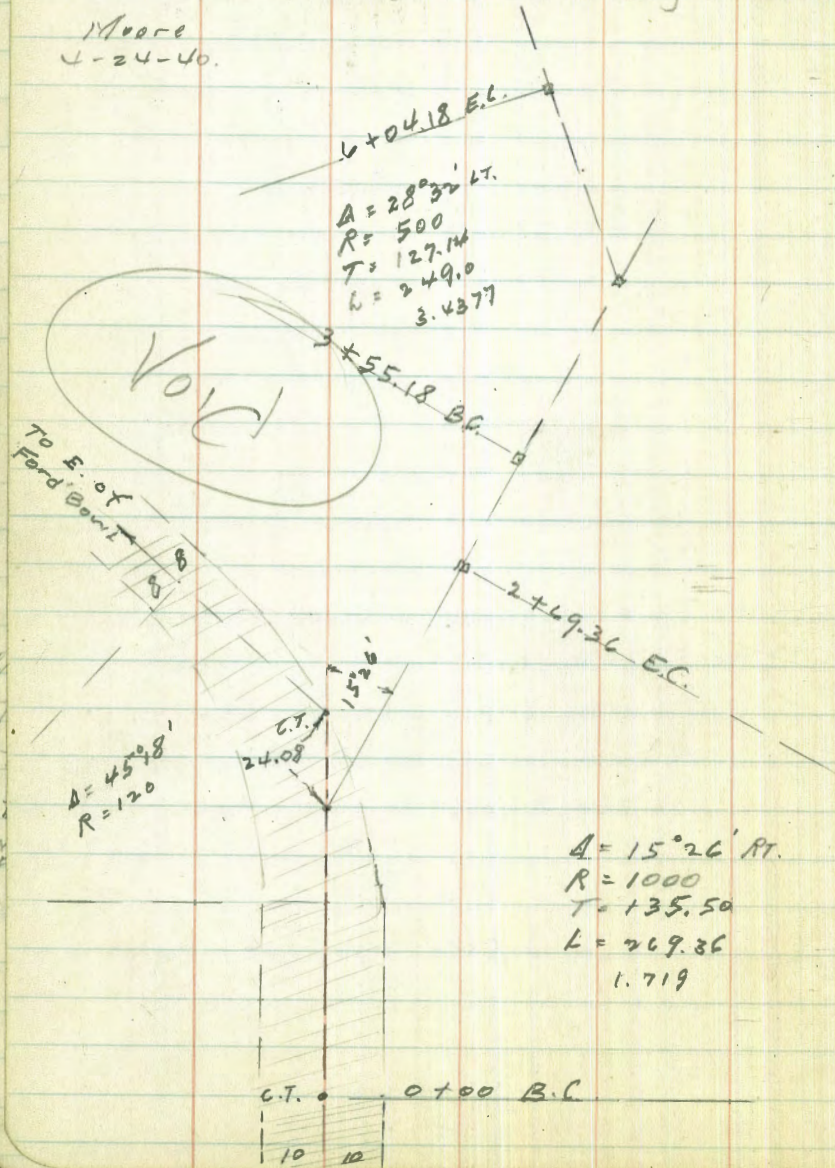 Moore
4-24-40.
6+04.18 E.C.
Δ = 28°32' LT.
R = 500
T = 127.14
L = 249.0
3.4377
3+55.18 B.C.
VOID
To E. of
Ford Bowl
8
8
2+69.36 E.C.
15°26'
C.T.
24.08
Δ = 45°18'
R = 120
Δ = 15°26' RT.
R = 1000
T = 135.50
L = 269.36
1.719
C.T. 0+00 B.C.
10 10